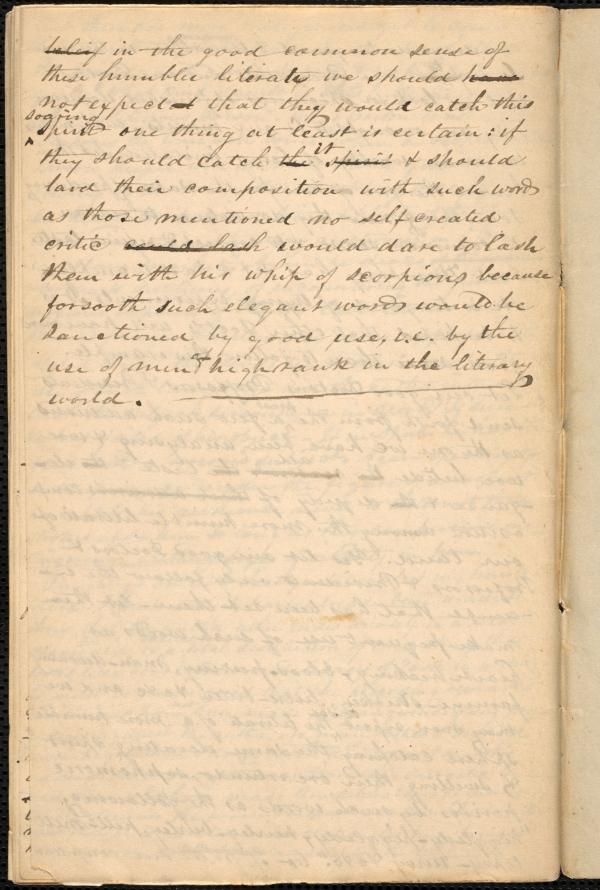 belief in the good common sense of
these humbler literati we should have
not expected that they would catch this
soaring
spirit one thing at least is certain: if
they should catch the it spirit & should
lard their composition with such words
as those mentioned no self created
critic could lash would dare to lash
them with his whip of scorpions because
forsooth such elegant words would be
sanctioned by good use, i.e. by the
use of men of high rank in the literary
world.